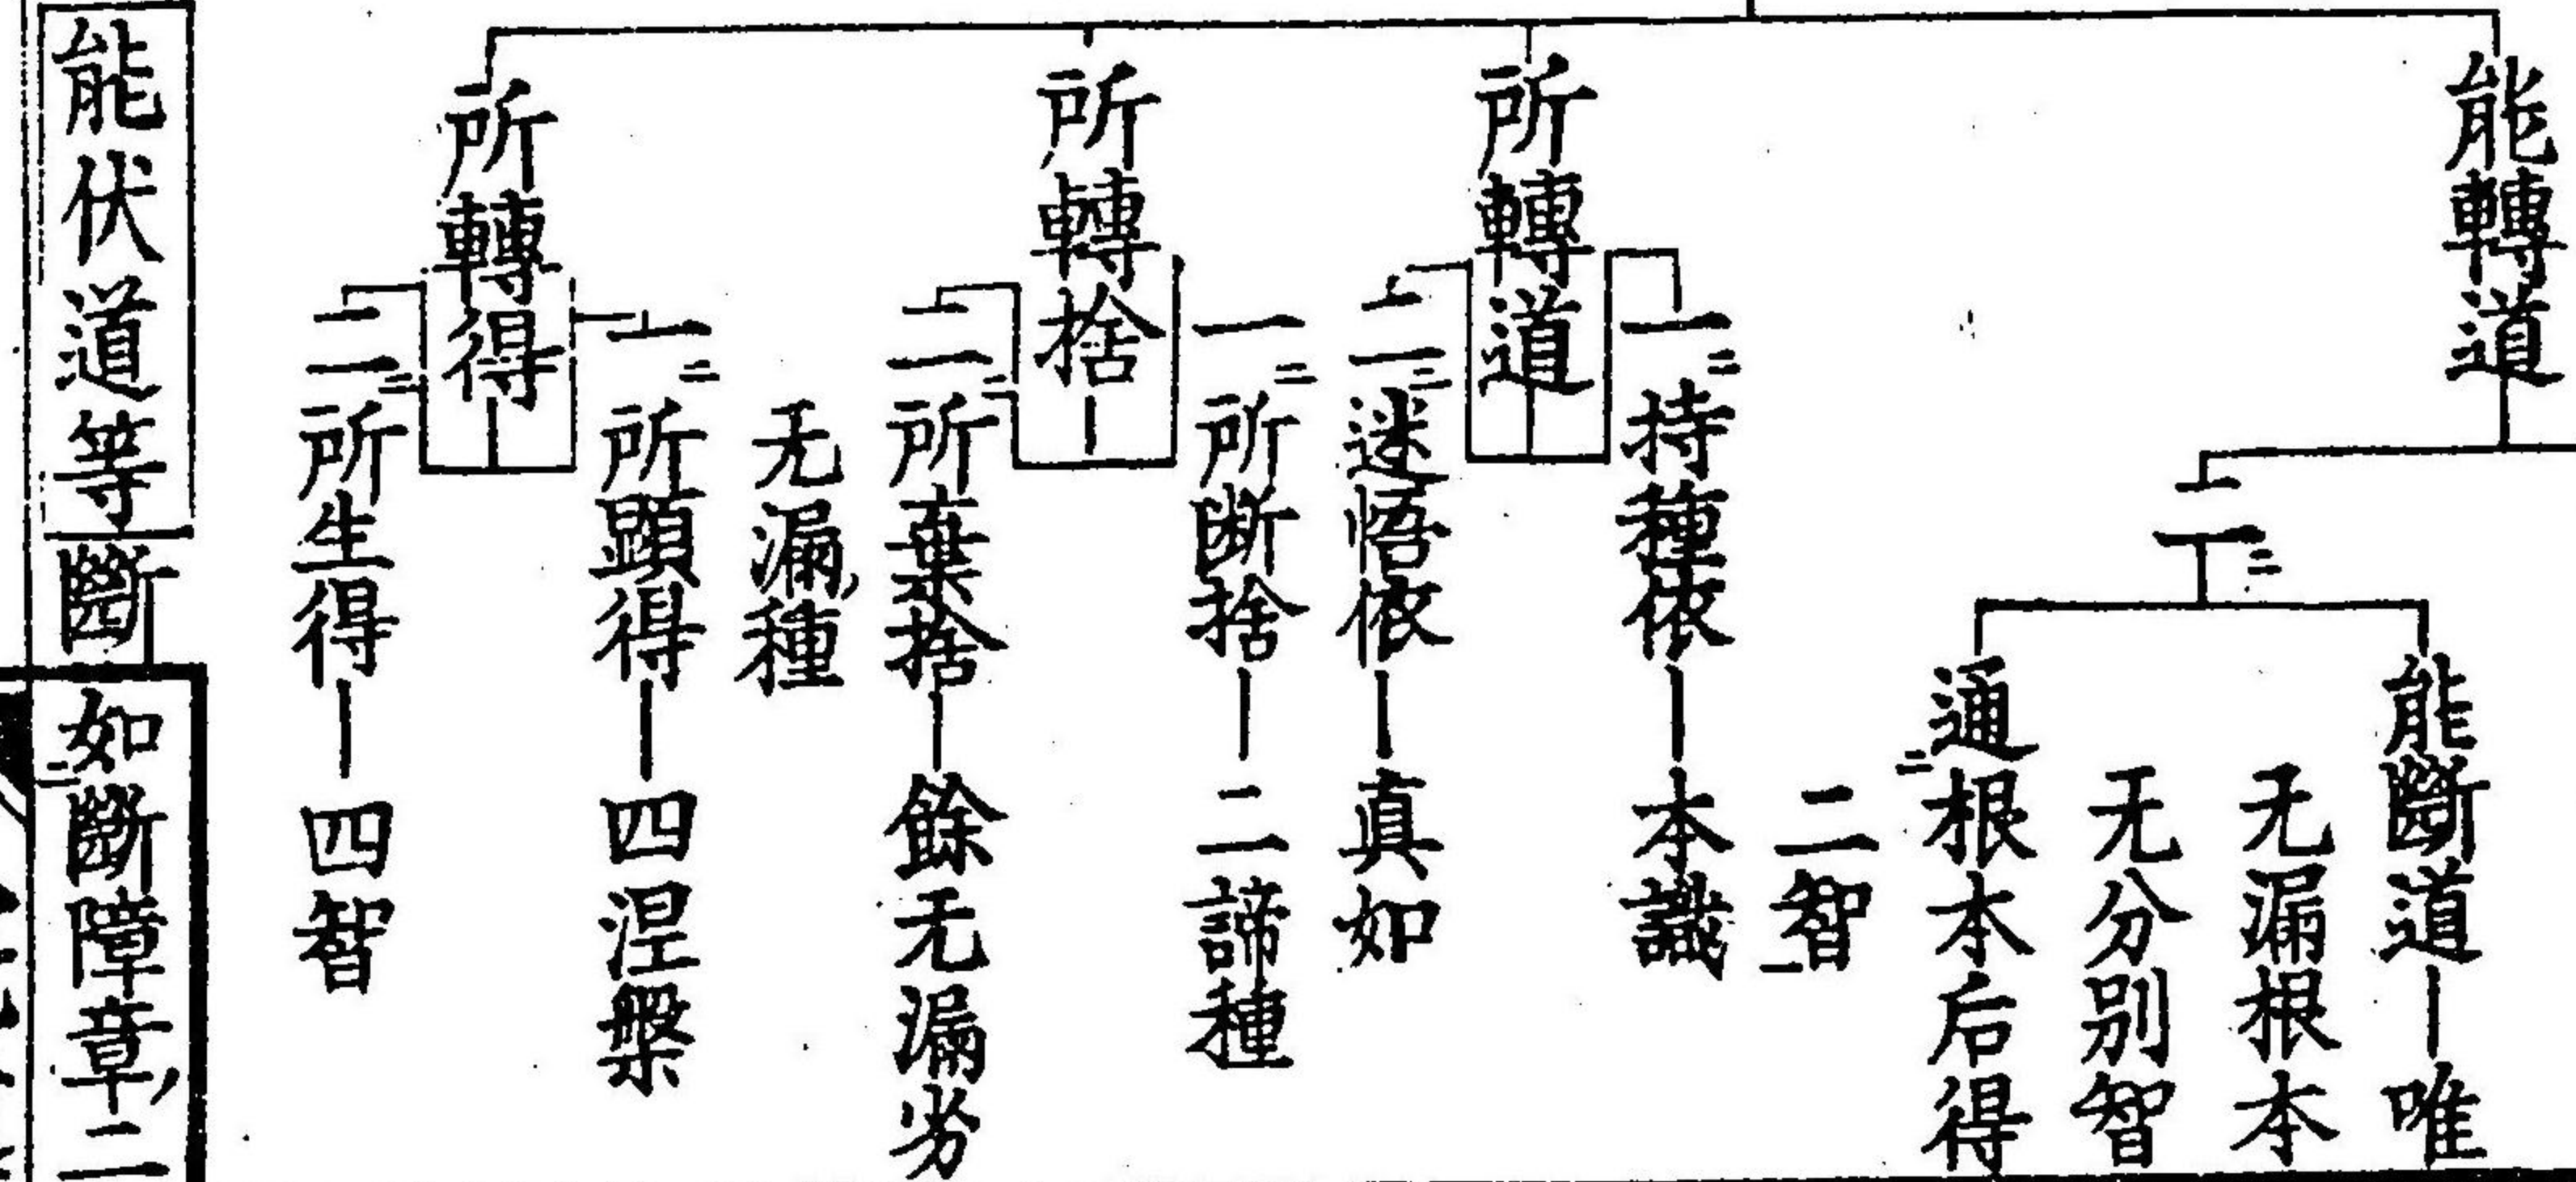 能轉道
二
能斷道 唯
无漏根本
无分別智
通根本后得
二智
所轉道
一 持種依 本識
二 迷悟依 真如
所轉捨
一 所断捨 二諦種
二 所棄捨 餘无漏劣
无漏種
所轉得
一 所顕得 四涅槃
二 所生得 四智
能伏道等斷
如斷障章二